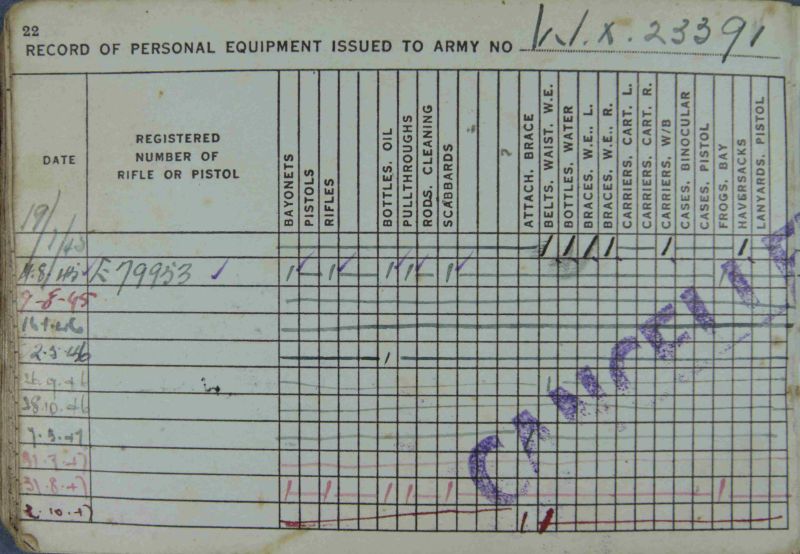 22
RECORD OF PERSONAL EQUIPMENT ISSUED TO ARMY NO X.23391
DATE
REGISTERED
NUMBER OF
RIFLE OR PISTOL
BAYONETS
PISTOLS
RIFLES
BOTTLES, OIL
PULLTHROUGHS
RODS, CLEANING
SCABBARDS
ATTACH, BRACE
BELTS, WAIST, W.E.
BOTTLES, WATER
BRACES, W.E., L.
BRACES, W.E., R.
CARRIERS, CART. L.
CARRIERS, CART. R.
CARRIERS, W/B
CASES, BINOCULAR
CASES, PISTOL
FROGS, BAY
HAVERSACKS
LANYARDS, PISTOL
19/1/45 1 1 1 1 1 1
E 79953 1 1 1 1 1
9-8-45
2.5.46 1
26.9.46
28.10.46
7.3.47
31.7.47
31.8.47 1 1 1 1 1 1
2.10.47 1 1
CANCELLED